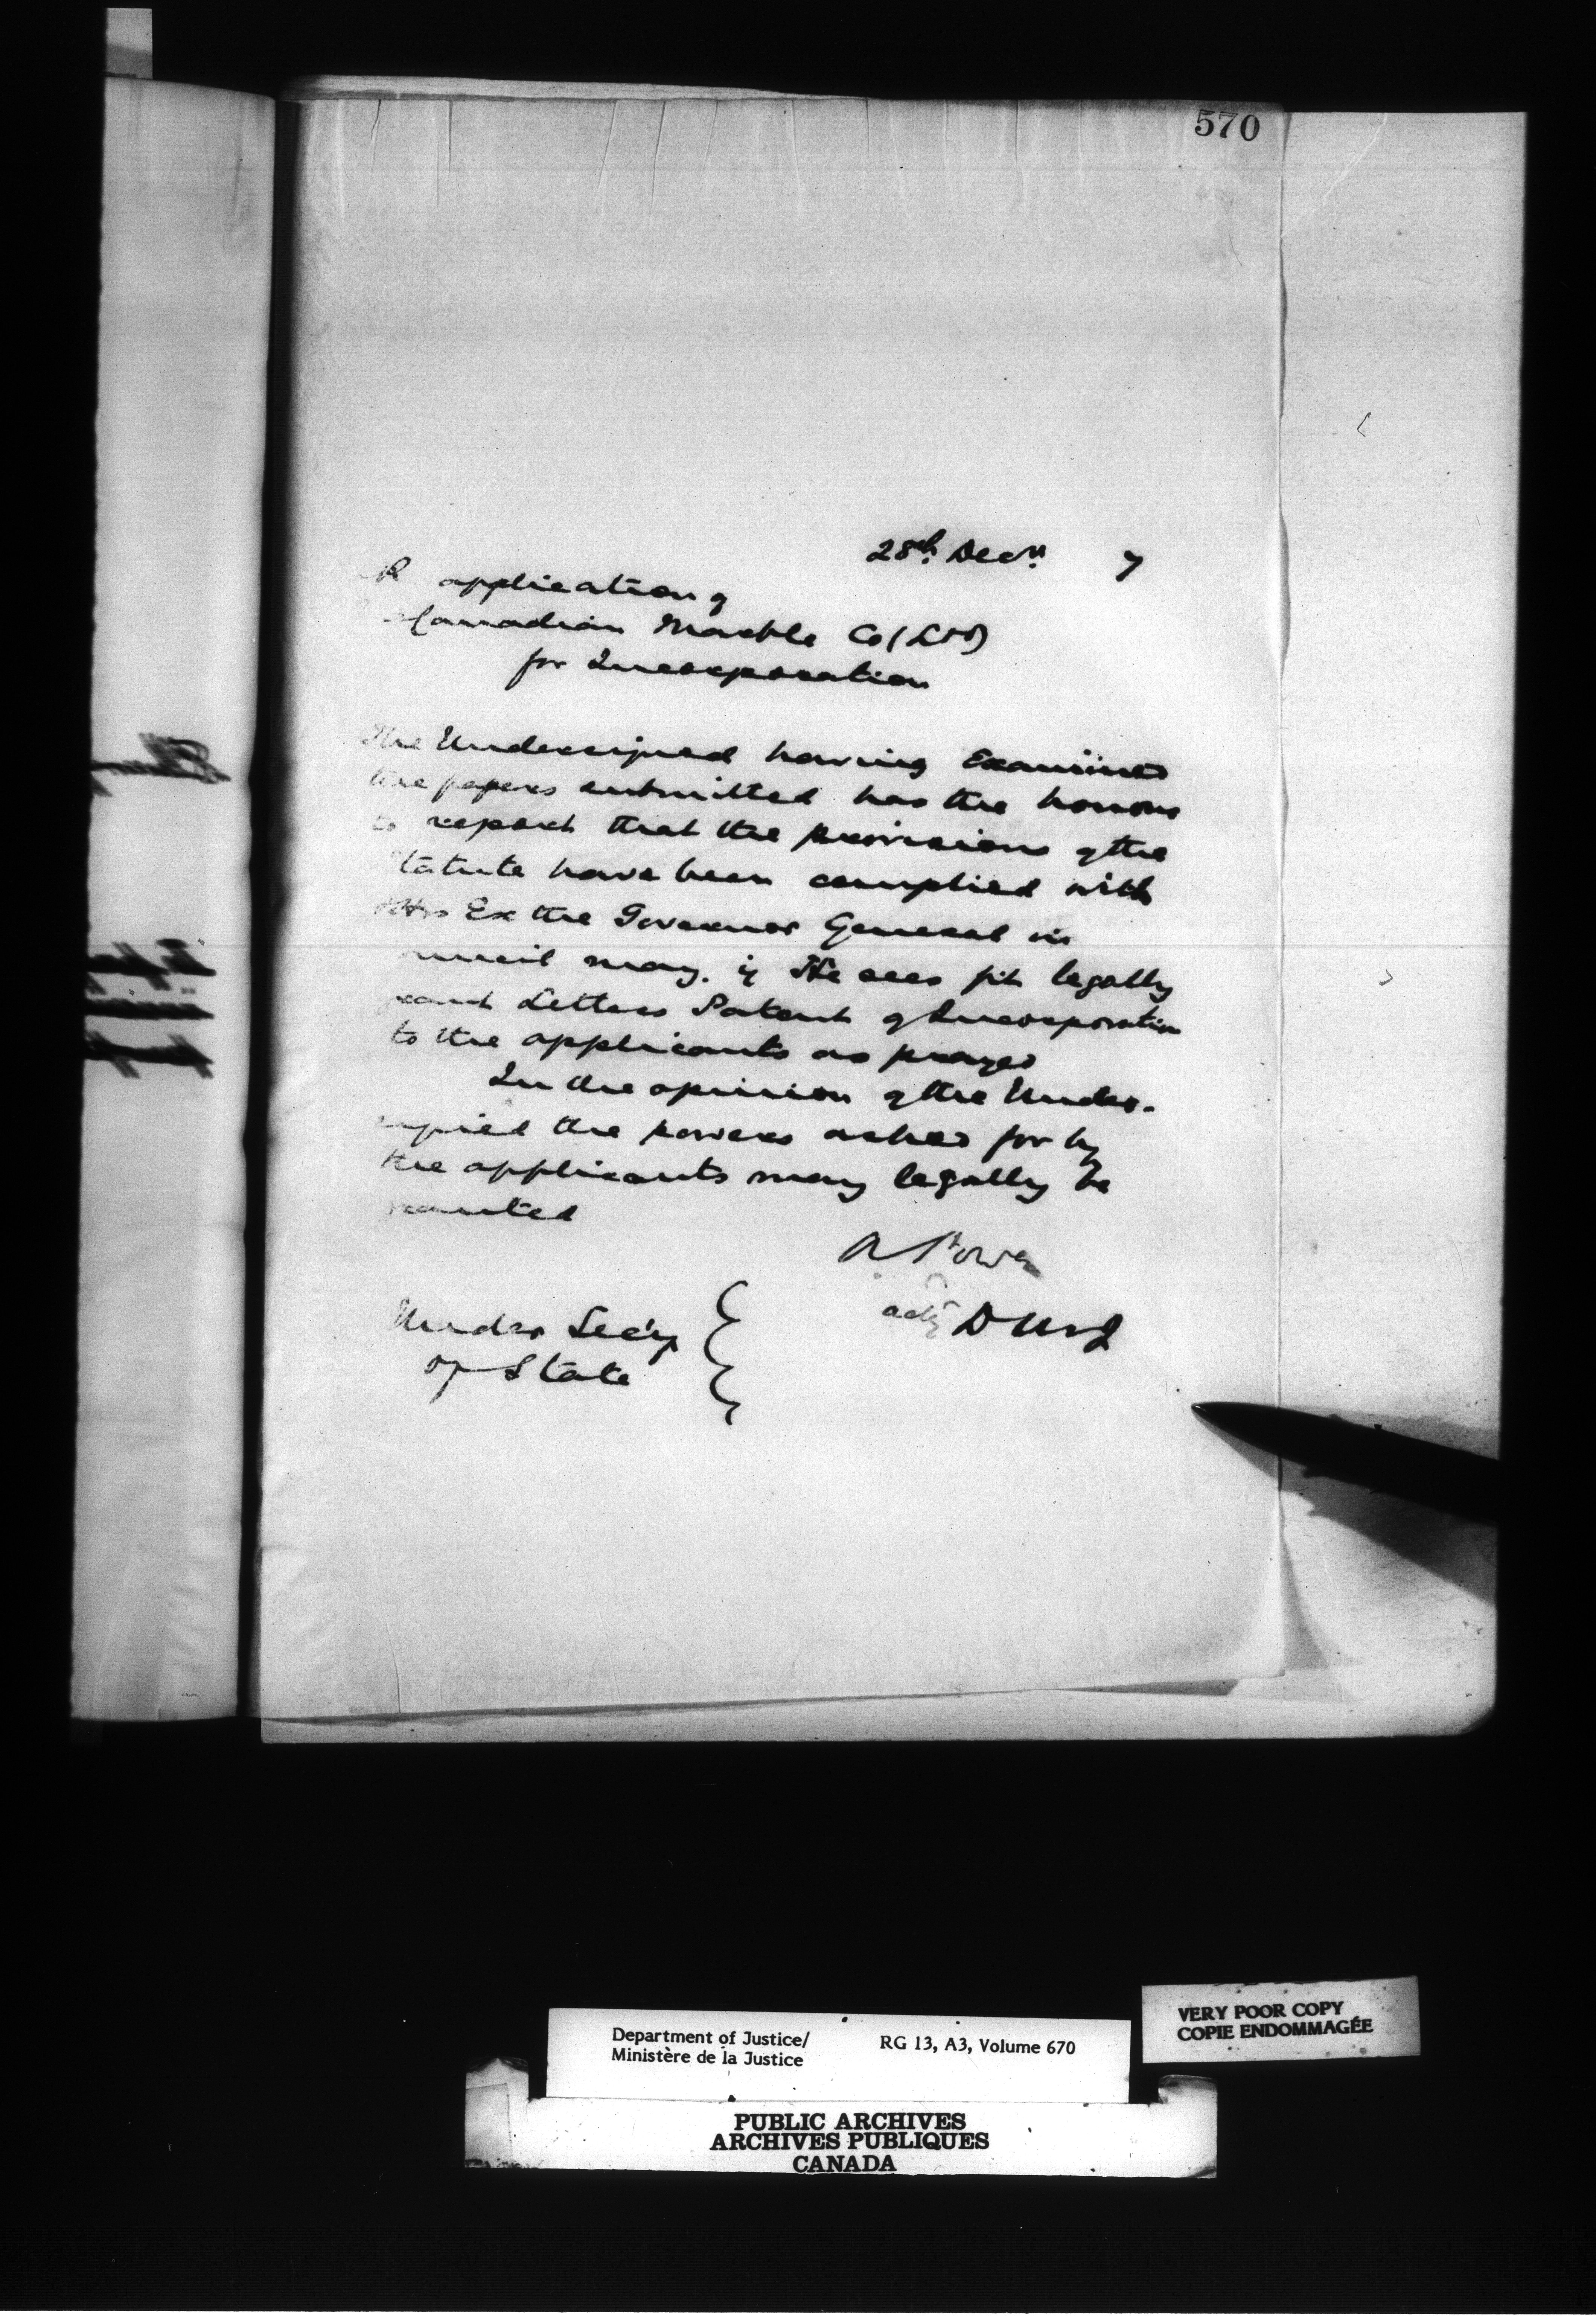 570
28th Decr. 7
R application of
Canadian Marble Co (Ltd)
for Incorporation
The Undersigned having Examined
the papers submitted has the honour
to report that the provisions of the
tatute have been complied with
His Ex the Governor General in
uncil may. if He sees fit legally
rant Letters Patent of Incorporation
to the applicants as prayed
In the opinion of the Under-
signed the powers asked for by
the applicants may legally be
ranted
A Power
actg D M of J
Under Sec'y
of State
Department of Justice/ RG 13, A3, Volume 670
Ministère de la Justice
VERY POOR COPY
COPIE ENDOMMAGÉE
PUBLIC ARCHIVES
ARCHIVES PUBLIQUES
CANADA